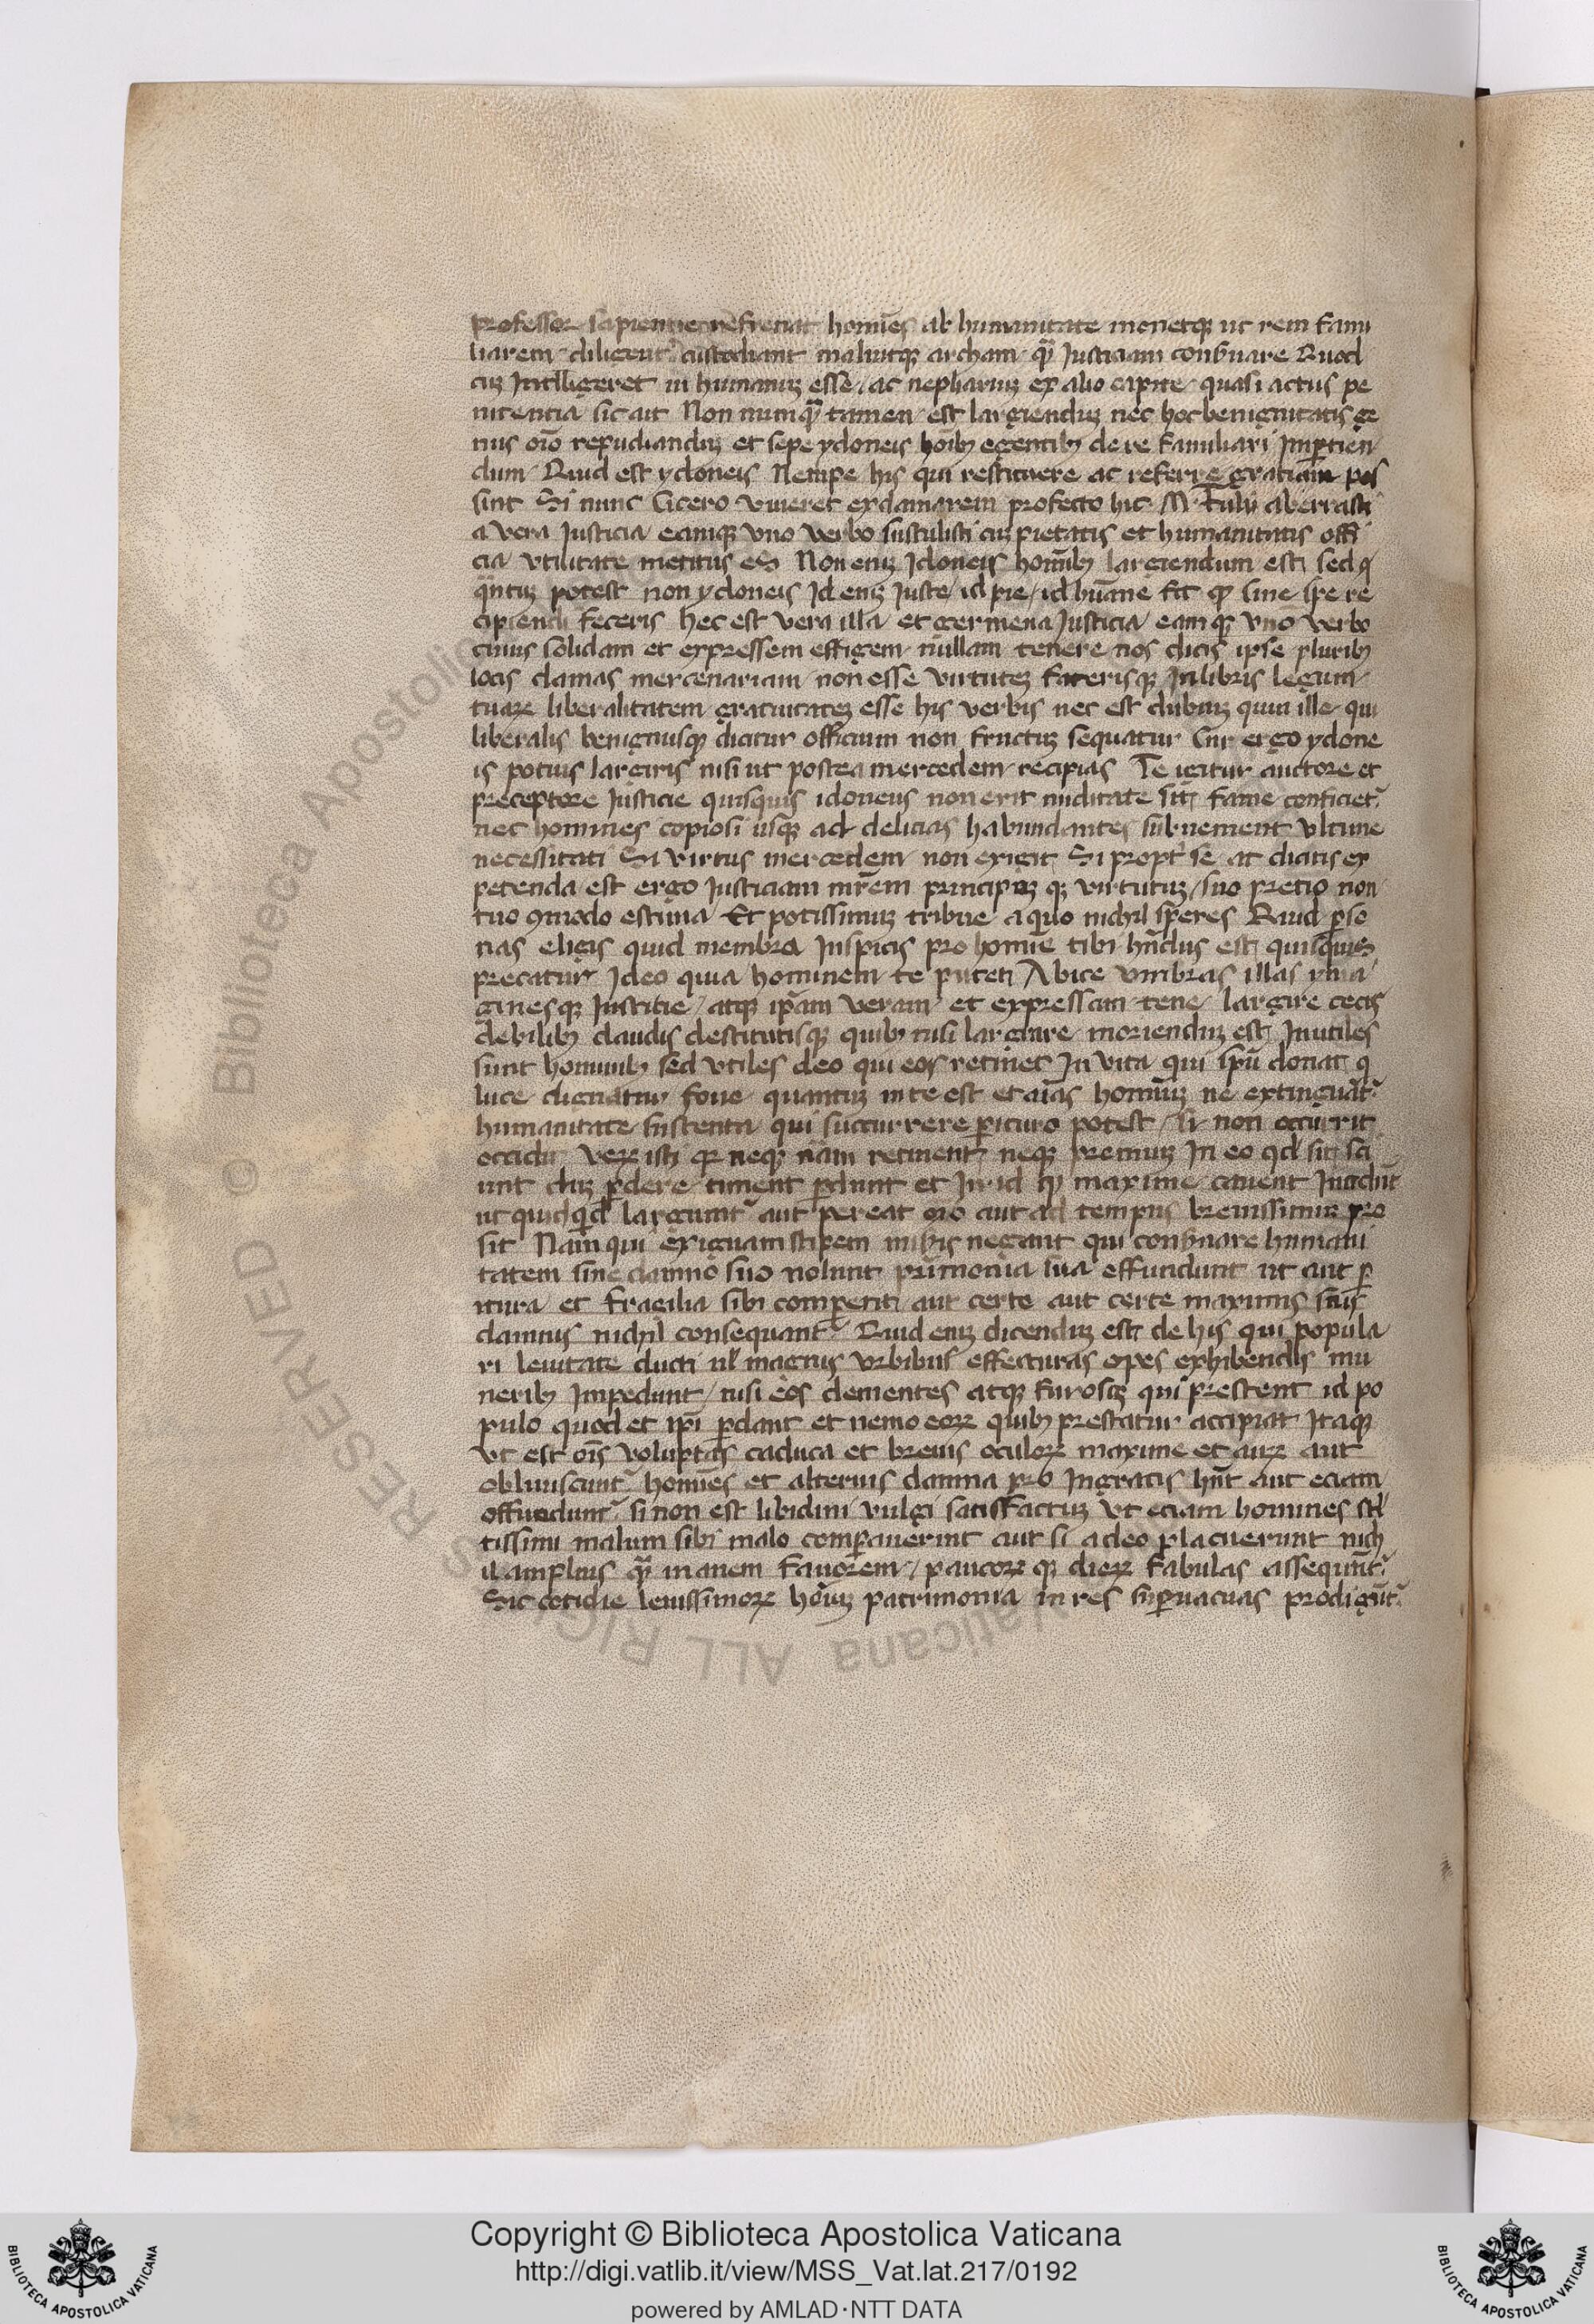 professor sapientie refrenat homīes ab humanitate monetqꝫ ut rem fami
liarem diligent̾ custodiant maliutqꝫ archam qᷓ Justiciam conẜuare Quod
cuꝫ Intelligeret in humanuꝫ esse ac nephariuꝫ ex alio capite quasi actus pe
nitentia sic ait Non numqᷓ tamen est largienduꝫ nec hoc benignitatis ge
nus oīo repudianduꝫ et sepe ydoneis hoībꝫ egentibꝫ de re familiari Imꝑtien
dum Quid est ydoneis Nempe his qui restituere ac referre gratiam pos
sint Si nunc Cicero viueret exclamarem profecto hic M tulli aberrasti
a vera Justicia eamqꝫ vno verbo sustulisti cuꝫ pietatis et humanitatis offi
cia vtilitate metitus es Non eniꝫ Idoneis homībꝫ largiendum est sed q
qᷓntuꝫ potest non ydoneis Id eniꝫ Juste id pie id hūane fit qꝫ sine spe re
cipiendi feceris hec est vera illa et germena Justicia eamqꝫ vno verbo
cuius solidam et expressem effigem nullam tenere nos dicis ipse pluribꝫ
locis clamas mercenariam non esse virtuteꝫ faterisqꝫ In libris legum
tuaꝝ liberalitatem gratuitateꝫ esse his verbis nec est dubiuꝫ quin ille qui
liberalis benignusqꝫ dicitur officium non fructuꝫ sequatur Cur ergo ydone
is potius largiris nisi ut postea mercedem recipias Te igitur auctore et
preceptore Justicie quisquis idoneus non erit nuditate siti fame conficiet̾
nec homines copiosi usqꝫ ad delicias habundantes subuenient vltime
necessitati Si virtus mercedem non exigit Si propt̾ se at dicitis ex
petenda est ergo Justiciam mr̄em principiuꝫ qꝫ virtutuꝫ suo pretio non
tuo ꝯmodo estima Et potissimuꝫ tribue a quo nichil speres Quid ꝑso
nas eligis quid membra Inspicis pro homīe tibi hn̄dus est quisquis
precatur Ideo quia hominem te putet Abice vmbras illas yma
ginesqꝫ Justitie atqꝫ ip̄am veram et expressam tene largire cecis
debilibꝫ claudis destitutisqꝫ quibꝫ nisi largiare morienduꝫ est Inutiles
sunt hominibꝫ sed vtiles deo qui eos retinet In vita qui sp̄u donat q
luce dignatur foue quantuꝫ in te est et aīas homīuꝫ ne extinguāt̾
humanitate sustenta qui succurrere ꝑituro potest si non occurrit
occidit Veꝝ isti qꝛ neqꝫ nām retinent neqꝫ premiuꝫ In eo qd sit sci
unt duꝫ ꝑdere timent ꝑdunt et In id qꝫ maxime cauent Incidūt
ut quidqͥd largiunt̾ aut pereat oīo aut ad tempus breuissimuꝫ pro
sit Nam qui exiguam stipem miseris negant qui conẜuare humani
tatem sine damno suo nolunt pr̄imonia sua effundunt ut aut ꝑ
itura et fragilia sibi comparent aut certe aut certe maximis suis
damnis nichil consequant̾ Quid eniꝫ dicenduꝫ est de his qui popula
ri leuitate ducti ul̾ magnis vrbibus effecturas opes exhibendis mu
neribꝫ Impedunt nisi eos dementes atqꝫ furosuꝫ qui prestent id po
pulo quod et ip̄i ꝑdant et nemo eoꝝ quibꝫ prestatur accipiat Itaqꝫ
vt est oīs voluptas caduca et breuis oculoꝝ maxime et auꝝ aut
obliuiscunt̾ homīes et alterius damna pro Ingratis hn̄t aut eciam
offendunt̾ si non est libidini vulgi satisfactuꝫ vt eciam homines stl̾
tissimi malum sibi malo comꝑauerint aut si adeo placuerunt nich
il amplius qᷓ inanem fauorem paucoꝝ qꝫ dieꝝ fabulas assequnt̾
Sic cotidie leuissimoꝝ hoīuꝫ patrimonia in res suꝑuacuas prodigūt̾
Copyright © Biblioteca Apostolica Vaticana
http://digi.vatlib.it/view/MSS_Vat.lat.217/0192
powered by AMLAD·NTT DATA
BIBLIOTECA APOSTOLICA VATICANA
BIBLIOTECA APOSTOLICA VATICANA